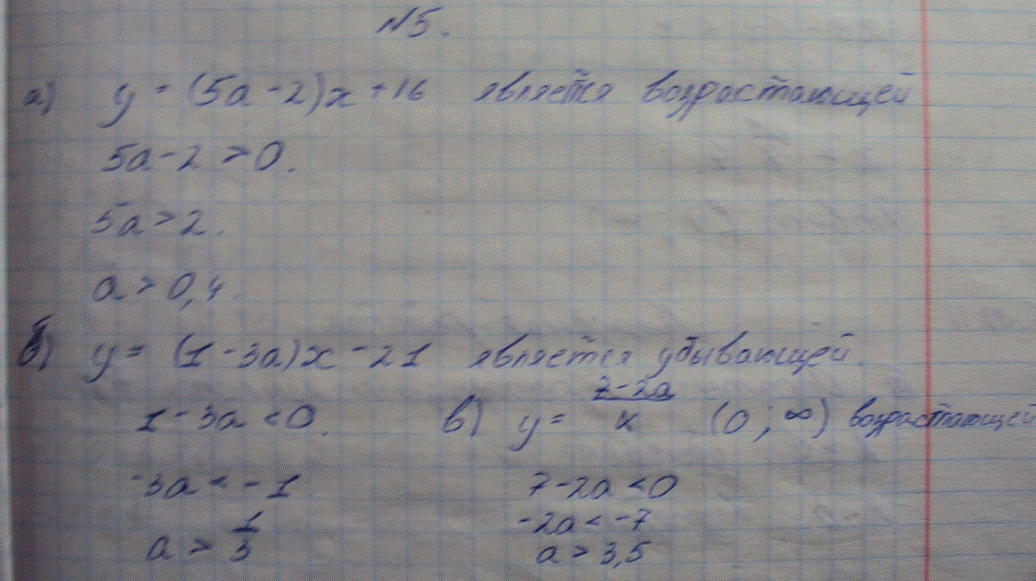 №5.
а) y = (5a - 2)x + 16 является возрастающей
5a - 2 > 0.
5a > 2.
a > 0,4.
б) y = (1 - 3a)x - 21 является убывающей.
1 - 3a < 0.
-3a < -1
a > 1/3
в) y = (7 - 2a)/x (0 ; ∞) возрастающей
7 - 2a < 0
-2a < -7
a > 3,5